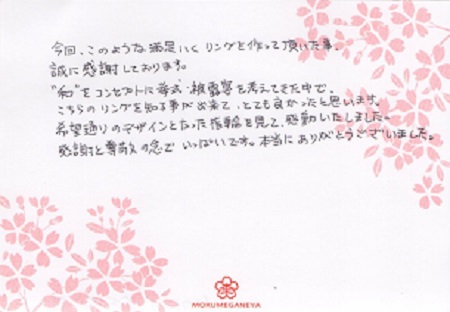 今回、このような満足いくリングを作って頂いた事、
誠に感謝しております。
"和"をコンセプトに挙式・披露宴を考えてきた中で、
こちらのリングを知る事が出来て、とても良かったと思います。
希望通りのデザインとなった指輪を見て、感動いたしました。
感謝と尊敬の念でいっぱいです。本当にありがとうございました。
MOKUMEGANEYA